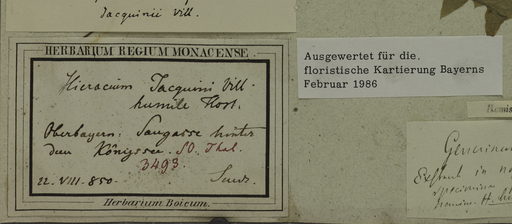 Jacquinii Vill.
HERBARIUM REGIUM MONACENSE.
Hieracium Jacquini Vill.
humile Host.
Oberbayern: Saugasse hinter
dem Königssee. SO. Thal.
3493.
22. VIII. 850. Sendt.
Herbarium Boicum.
Ausgewertet für die
floristische Kartierung Bayerns
Februar 1986
Remis
Generina
Exstant in
specimina